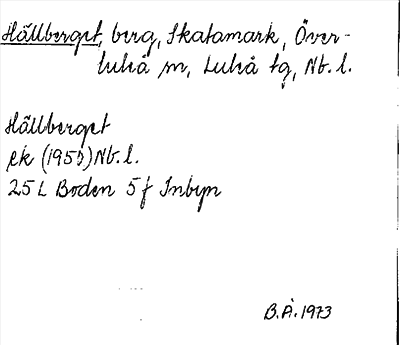 Hällberget, berg, Skatamark, Över-
luleå sn, Luleå tg, Nb. l.
Hällberget
ek (1951) Nb. l.
25 L Boden 5 f Inbyn
B.Å. 1973